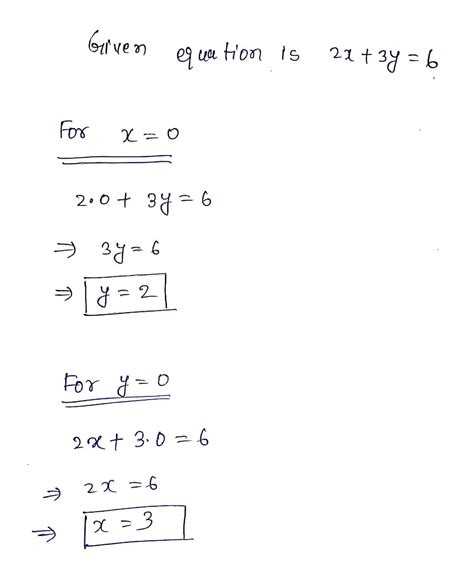 Given equation is 2x + 3y = 6
For x = 0
2.0 + 3y = 6
⇒ 3y = 6
⇒ y = 2
For y = 0
2x + 3.0 = 6
⇒ 2x = 6
⇒ x = 3